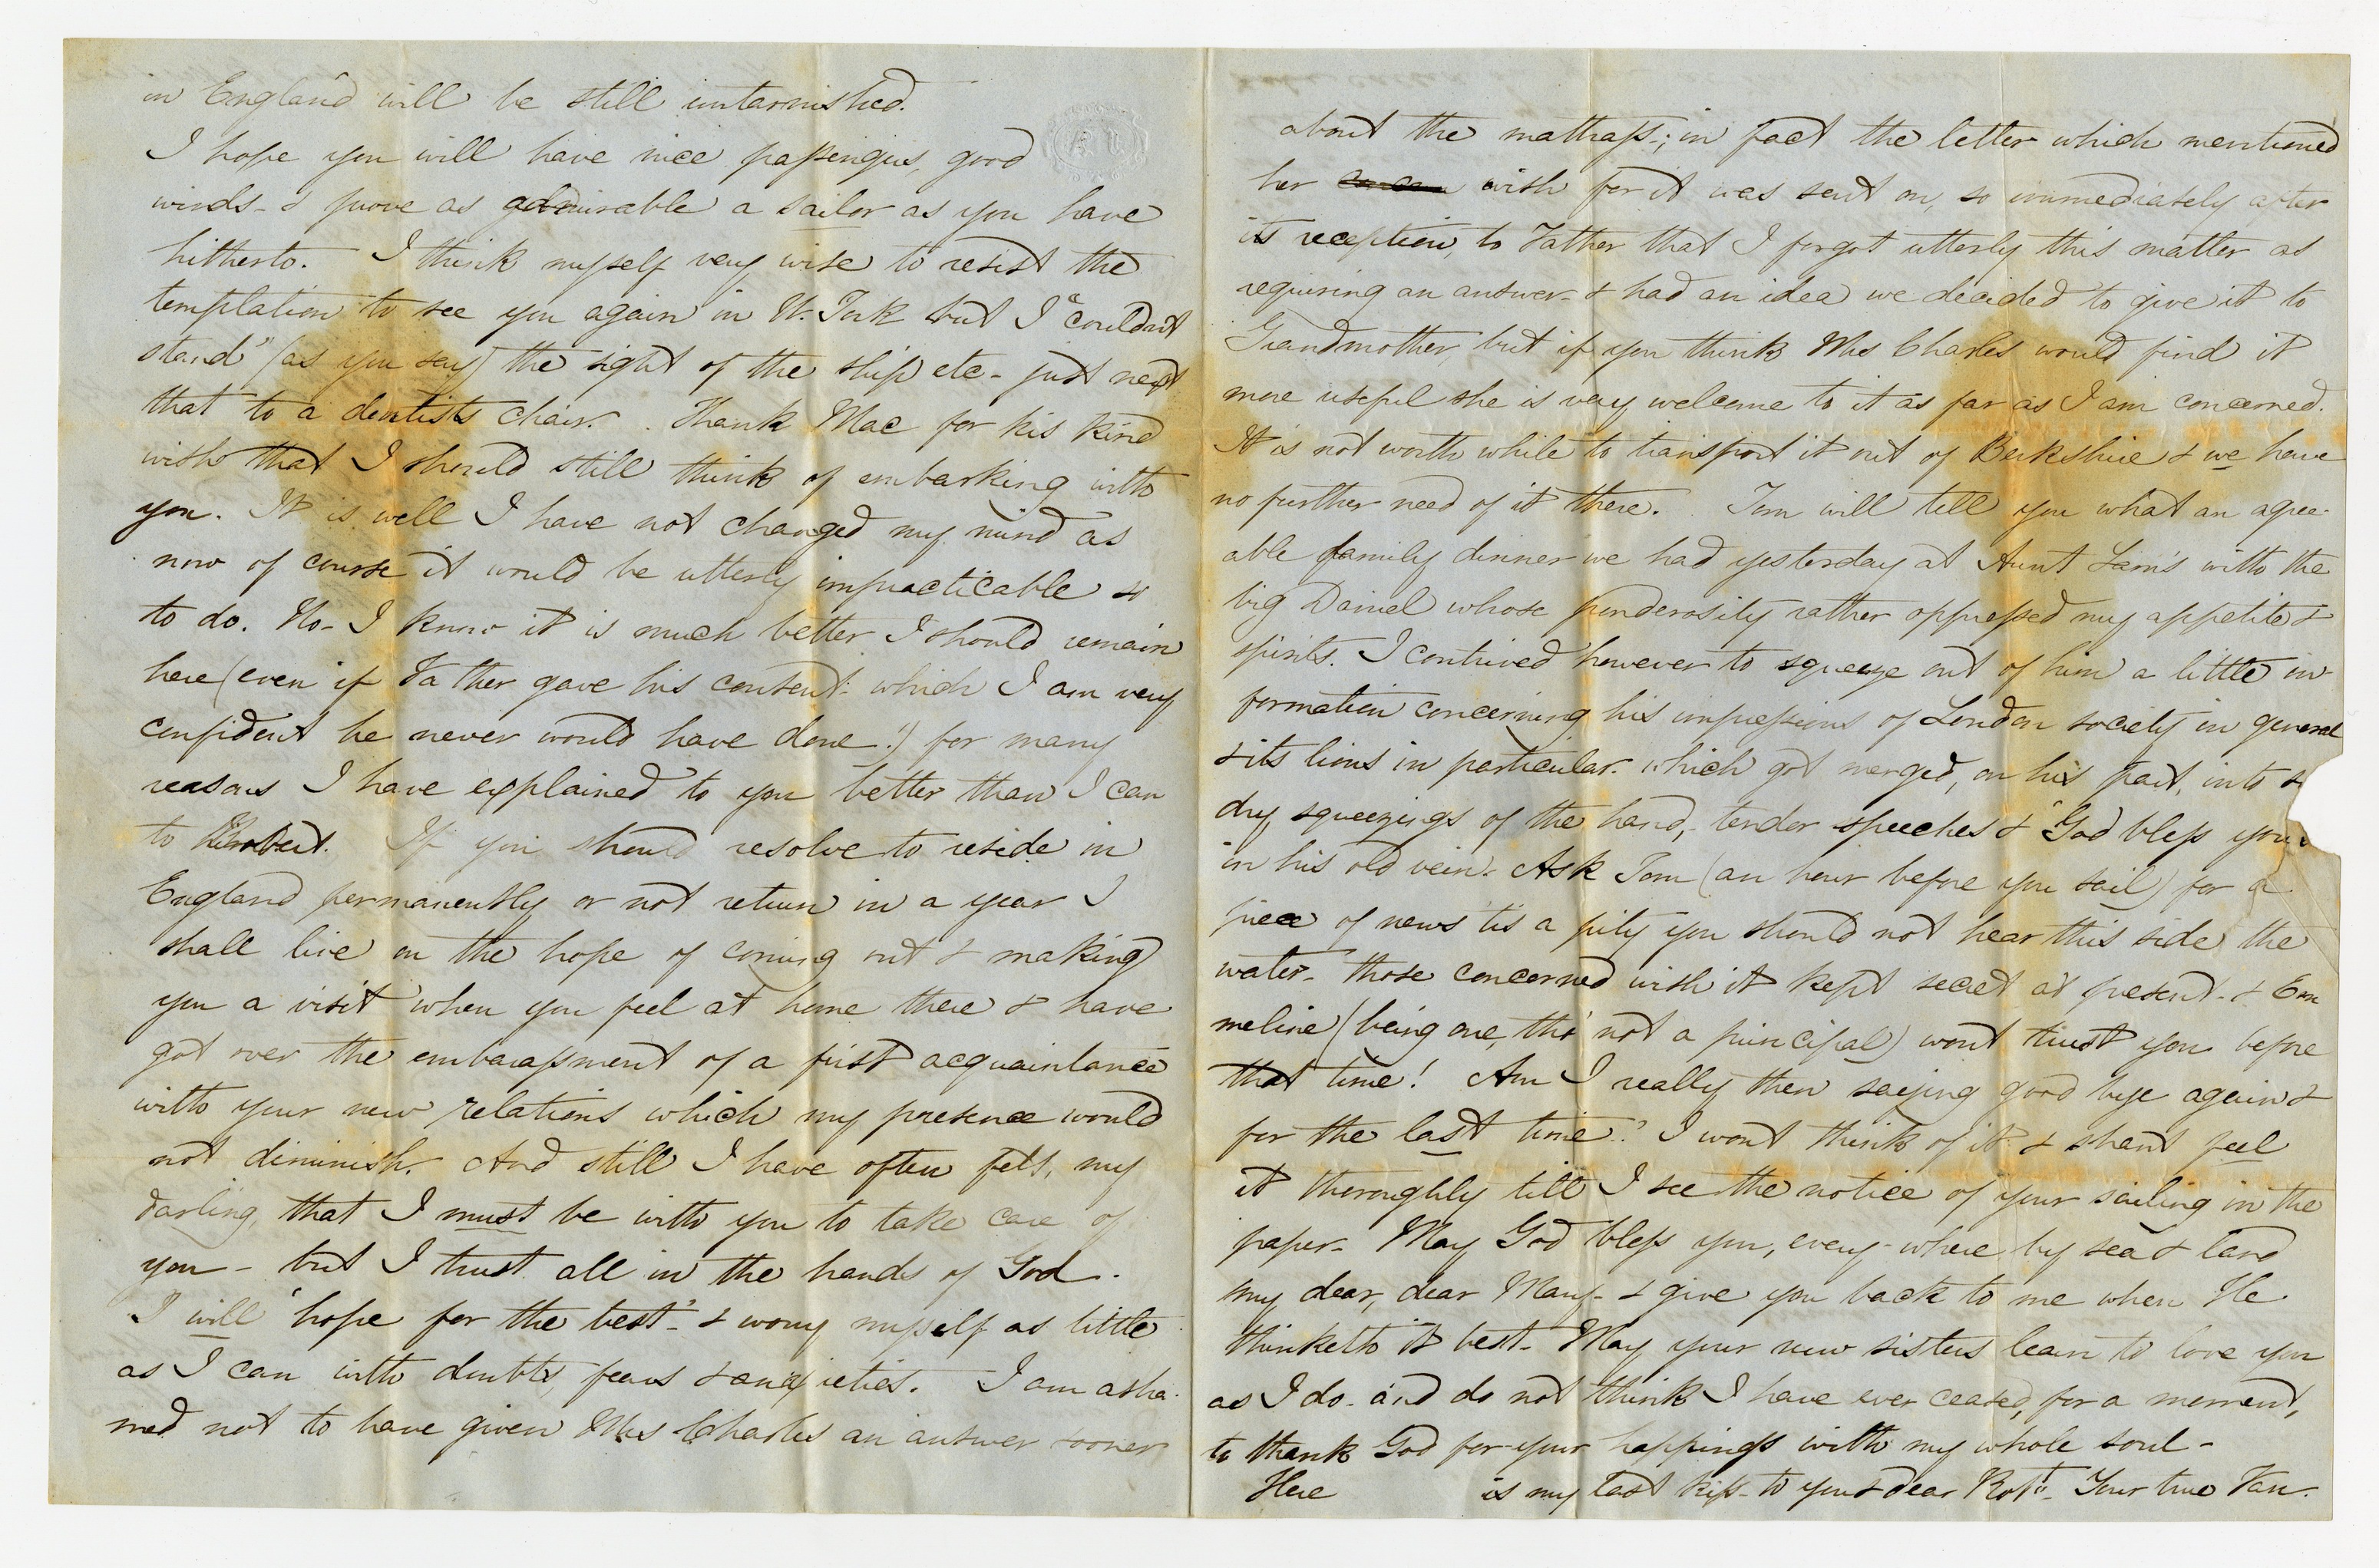 in England will be still untarnished.
I hope you will have nice passengers, good
winds - & prove as admirable a sailor as you have
hitherto. I think myself very wise to resist the
temptation to see you again in N. York but I "couldnt
stand" (as you say) the sight of the ship etc - just next
that to a dentists chair. Thank Mac for his kind
wish that I should still think of embarking with
you. It is well I have not changed my mind as
now of course it would be utterly impracticable so
to do. No - I know it is much better I should remain
here (even if Father gave his consent - which I am very
confident he never would have done!) for many
reasons I have explained to you better than I can
to Robert. If you should resolve to reside in
England permanently or not return in a year I
shall live on the hope of coming out & making
you a visit when you feel at home there & have
got over the embarassment of a first acquaintance
with your new relations which my presence would
not diminish. And still I have often felt, my
darling, that I must be with you to take care of
you - but I trust all in the hands of God.
I will "hope for the best" - & worry myself as little
as I can with doubts, fears & anxieties. I am asha-
med not to have given Mrs Charles an answer sooner
about the mattrass -; in fact the letter which mentioned
her wish for it was sent on, so immediately after
its reception, to Father that I forgot utterly this matter as
requiring an answer - & had an idea we decided to give it to
Grandmother, but if you think Mrs Charles would find it
more useful she is very welcome to it as far as I am concerned.
It is not worth while to transport it out of Berkshire & we have
no further need of it there. Tom will tell you what an agree-
able family dinner we had yesterday at Aunt Sam's with the
big Daniel whose ponderosity rather oppressed my appetite &
spirits. I contrived however to squeeze out of him a little in-
formation concerning his impressions of London society in general
& its lions in particular - which got merged, on his part, into
dry squeezings of the hand, - tender speeches & "God bless you"
in his old vein - Ask Tom (an hour before you sail) for a
piece of news 'tis a pity you should not hear this side the
water - those concerned wish it kept secret at present - & Em
meline (being one, tho' not a principal) wont trust you before
that time! Am I really then saying good bye again &
for the last time? I wont think of it - & shant feel
it thoroughly till I see the notice of your sailing in the
paper - May God bless you, every-where by sea & land
my dear, dear Mary - & give you back to me when He
thinketh it best - May your new sisters learn to love you
as I do - and do not think I have ever ceased, for a moment,
to thank God for your happiness with my whole soul -
Here is my last kiss - to you & dear Robt - Your true Fan.